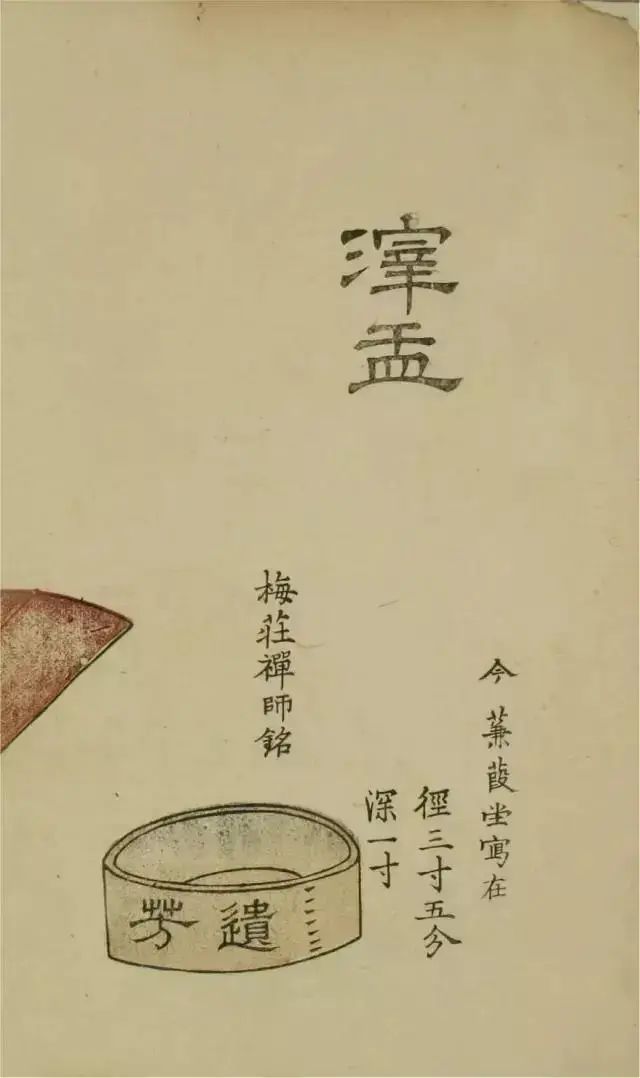 滓盂
今 蒹葭坣寓在
徑三寸五分
深一寸
梅荘禪師銘
遺芳